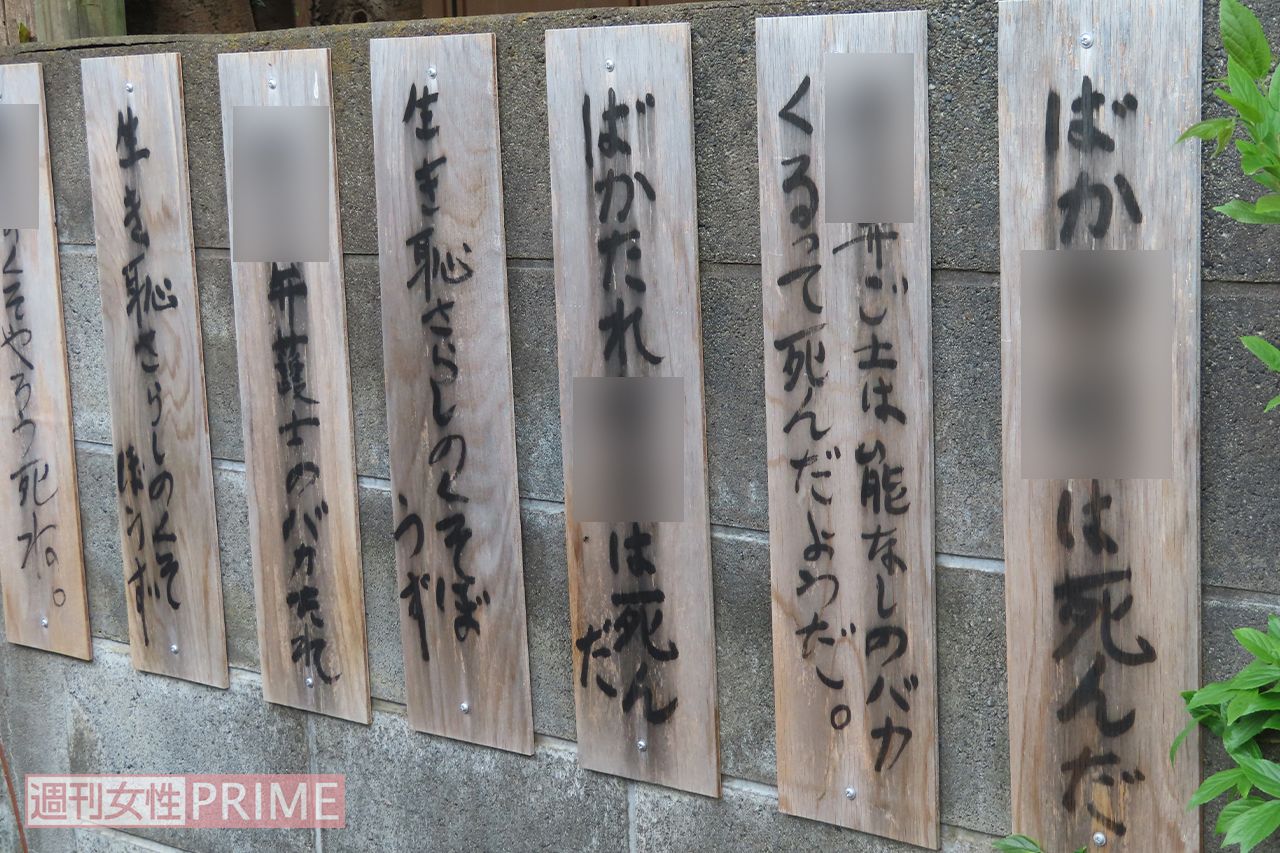 ばか
は死んだ
弁ご士は能なしのバカ
くるって死んだようだ。
ばかたれ
は死ん
だ
生き恥さらしのくそば
うず
弁護士のバカたれ
生き恥さらしのくそ
ぼうず
くそやろう死ね。
週刊女性PRIME